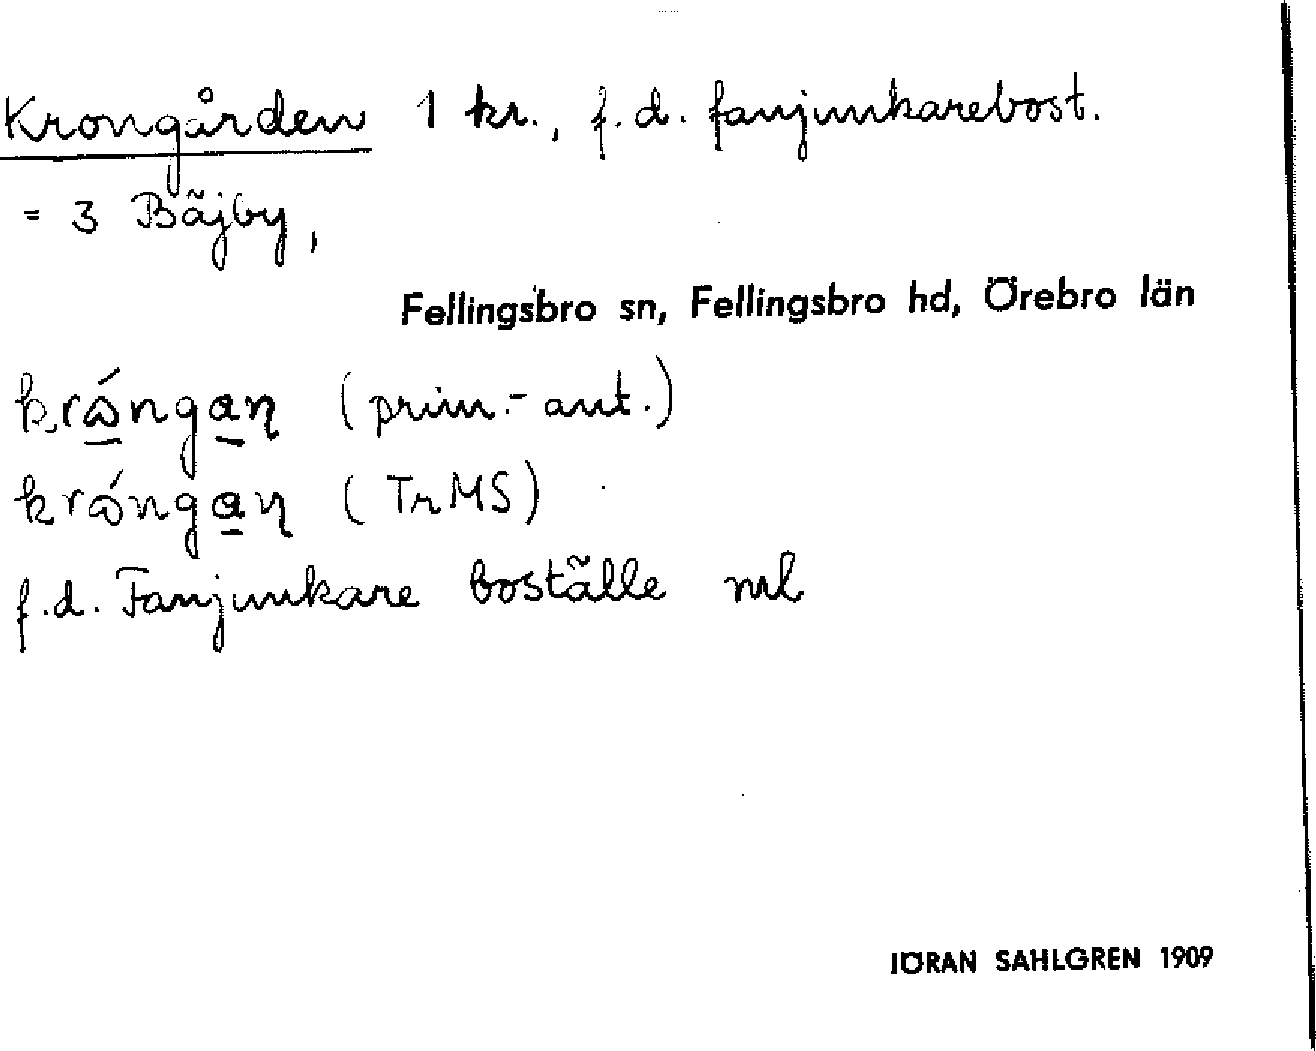 Krongården 1 kr., f.d. fanjunkarebost.
= 3 Bäjby,
Fellingsbro sn, Fellingsbro hd, Örebro län
(prim.-ant.)
(TrMS)
f.d. Fanjunkare boställe ml
JÖRAN SAHLGREN 1909